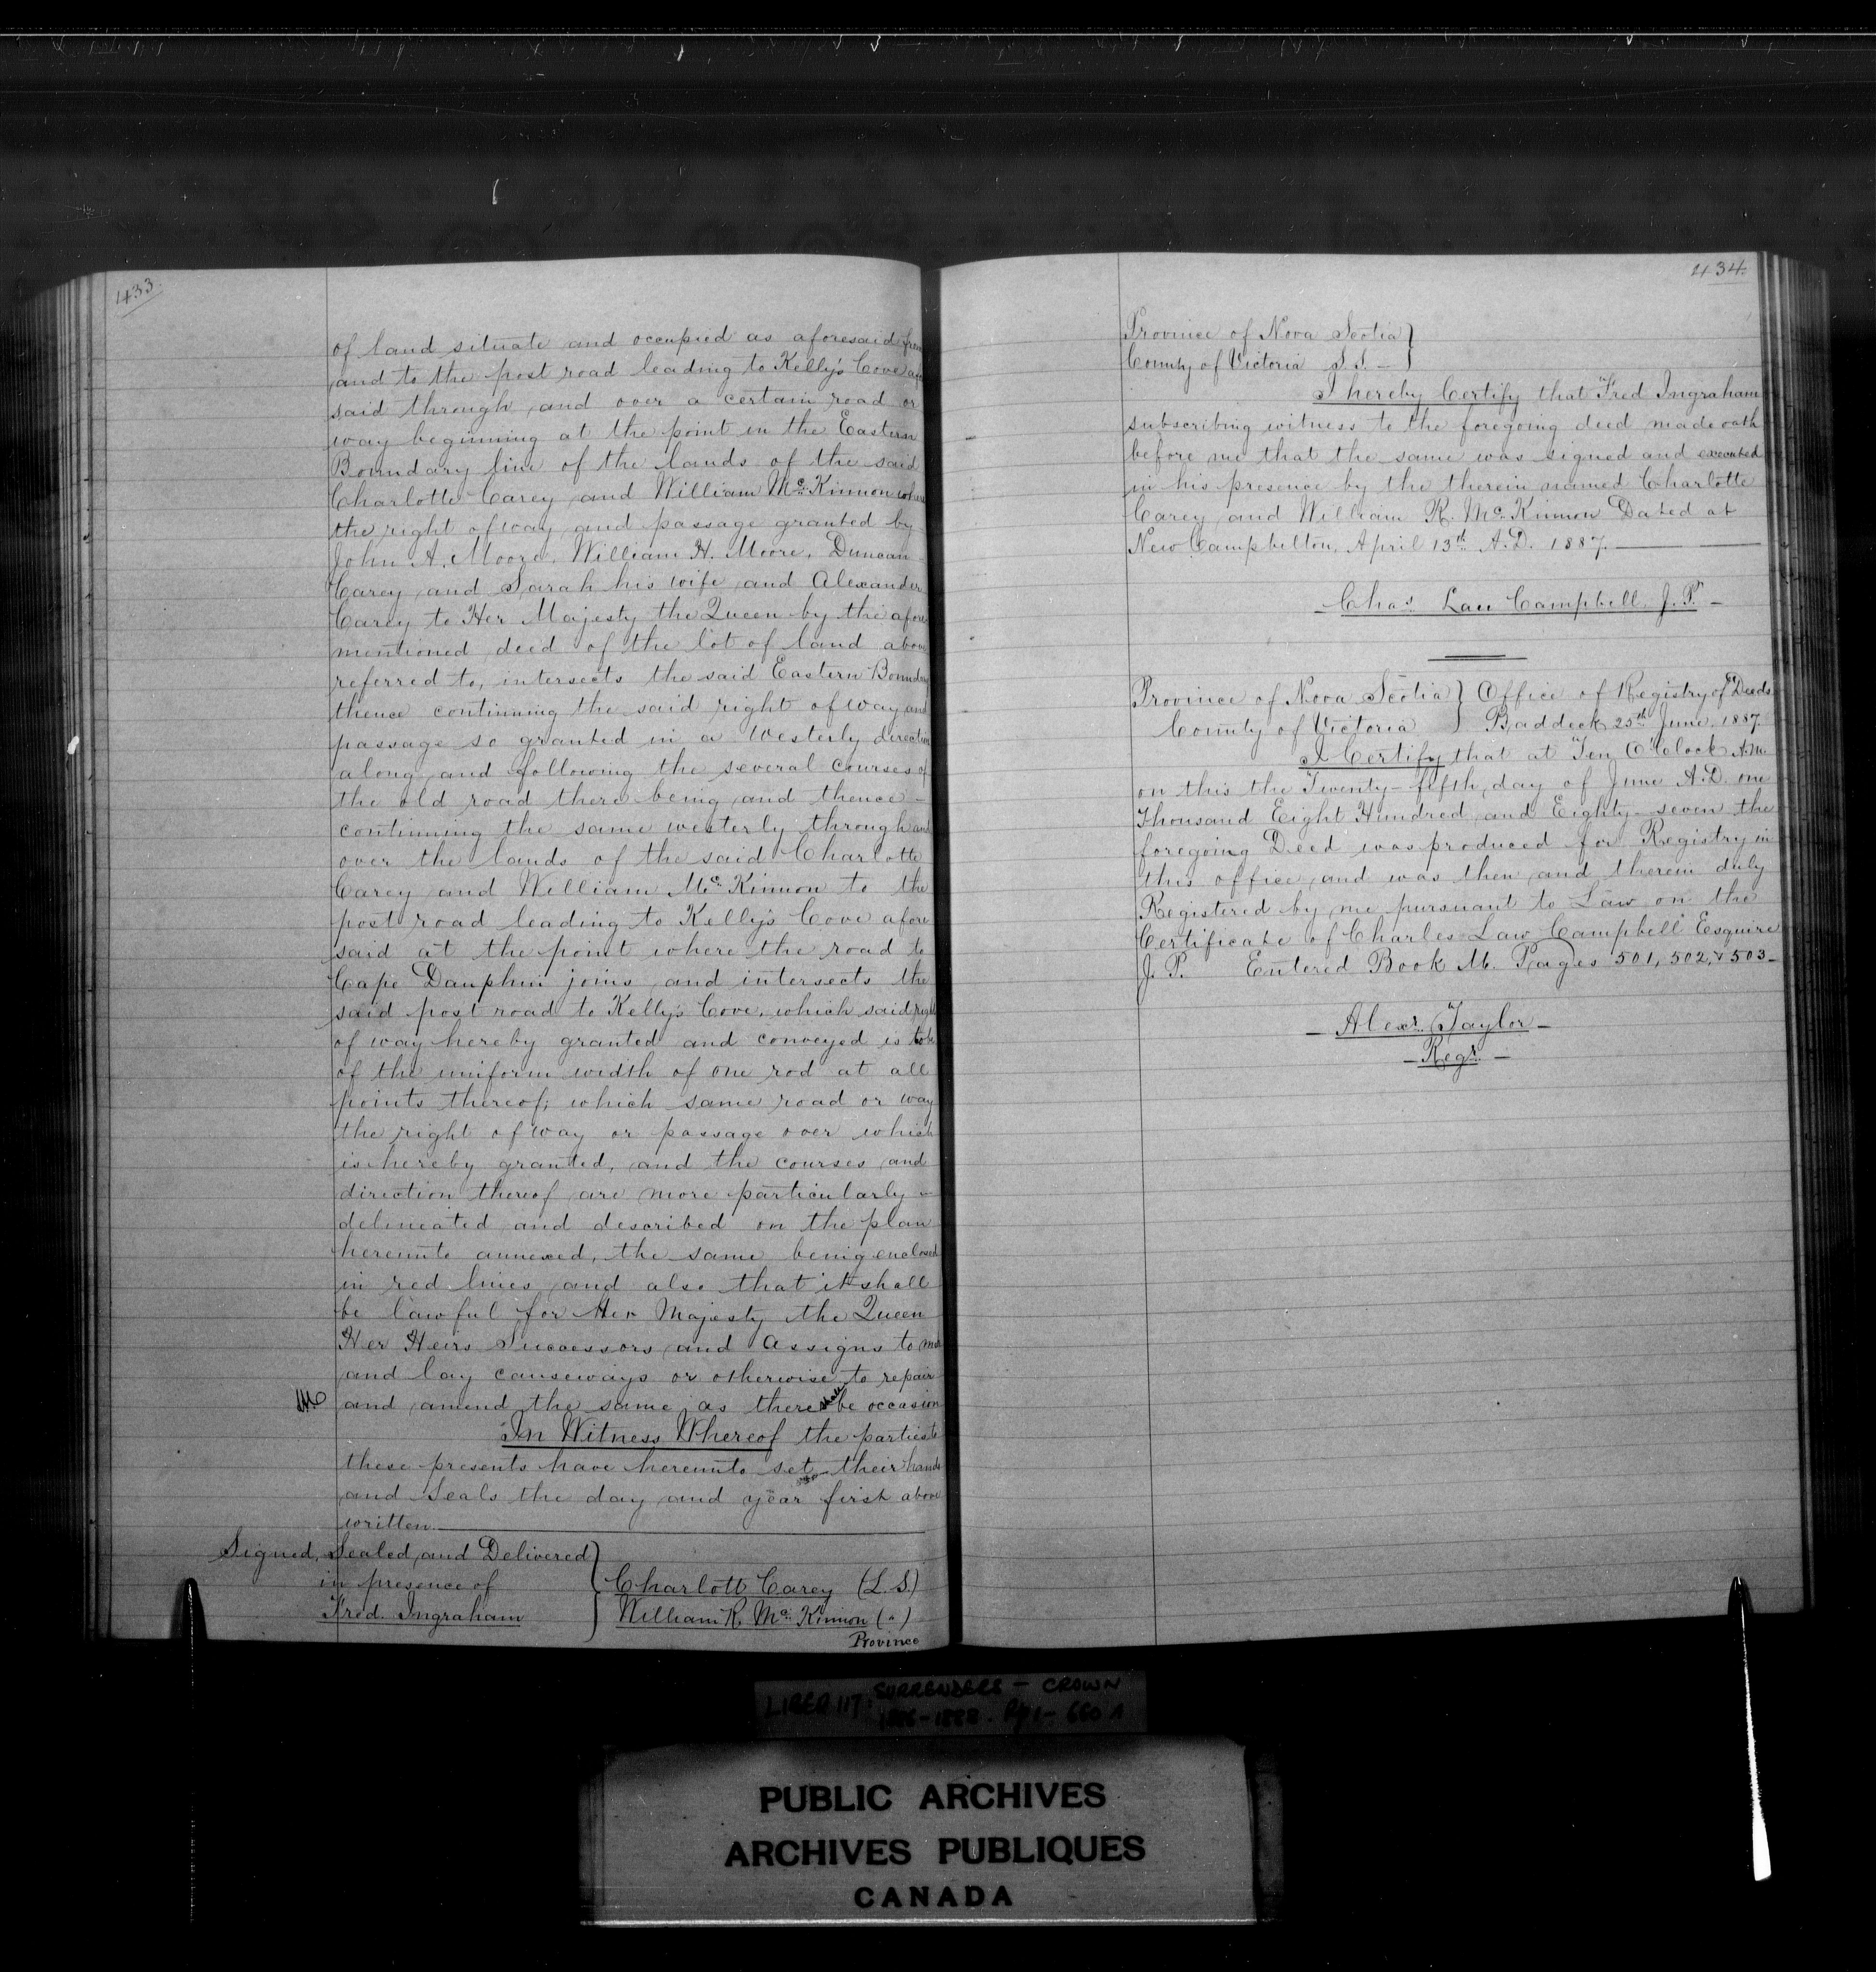 433.
of land situate and occupied as aforesaid from
and to the post road leading to Kelly's Cove afore
said through and over a certain road or
way beginning at the point in the Eastern
Boundary line of the lands of the said
Charlotte Carey and William Mc. Kinnon where
the right of way and passage granted by
John A. Moore, William H. Moore, Duncan
Carey and Sarah his wife and Alexander
Carey to Her Majesty the Queen by the afore
mentioned deed of the lot of land above
referred to, intersects the said Eastern Boundary
thence continuing the said right of way and
passage so granted in a Westerly direction
along and following the several courses of
the old road there being and thence -
continuing the same westerly through and
over the lands of the said Charlotte
Carey and William Mc. Kinnon to the
post road leading to Kelly's Cove afore
said at the point where the road to
Cape Dauphin joins and intersects the
said post road to Kelly's Cove, which said right
of way hereby granted and conveyed is to be
of the uniform width of one rod at all
points thereof; which same road or way
the right of way or passage over which
is hereby granted, and the courses and
direction thereof are more particularly -
delineated and described on the plan
hereunto annexed, the same being enclosed
in red lines and also that it shall
be lawful for Her Majesty the Queen
Her Heirs Successors and Assigns to make
and lay causeways or otherwise to repair
and amend the same as there shall be occasion
In Witness Whereof the parties to
these presents have hereunto set their hands
and Seals the day and year first above
written.
Signed, Sealed and Delivered
in presence of
Fred. Ingraham
Charlott Carey (L.S.)
William R. Mc. Kinnon (")
Province
434.
Province of Nova Scotia
County of Victoria S.S. -
I hereby Certify that Fred Ingraham
subscribing witness to the foregoing deed made oath
before me that the same was signed and executed
in his presence by the therein named Charlotte
Carey and William R. Mc. Kinnon Dated at
New Campbelton, April 13th A.D. 1887.
- Chas Law Campbell J.P. -
Province of Nova Scotia } Office of Registry of Deeds
County of Victoria } Baddeck 25th June 1887
I Certify that at Ten O'Clock A.M.
on this the Twenty-fifth day of June A.D. one
Thousand Eight Hundred and Eighty-seven the
foregoing Deed was produced for Registry in
this office and was then and therein duly
Registered by me pursuant to Law on the
Certificate of Charles Law Campbell Esquire
J.P. Entered Book M. Pages 501, 502, & 503 -
- Alexr. Taylor -
- Regr. -
LIBER 117: SURRENDERS - CROWN
1886-1888. Pp 1-660 A
PUBLIC ARCHIVES
ARCHIVES PUBLIQUES
CANADA